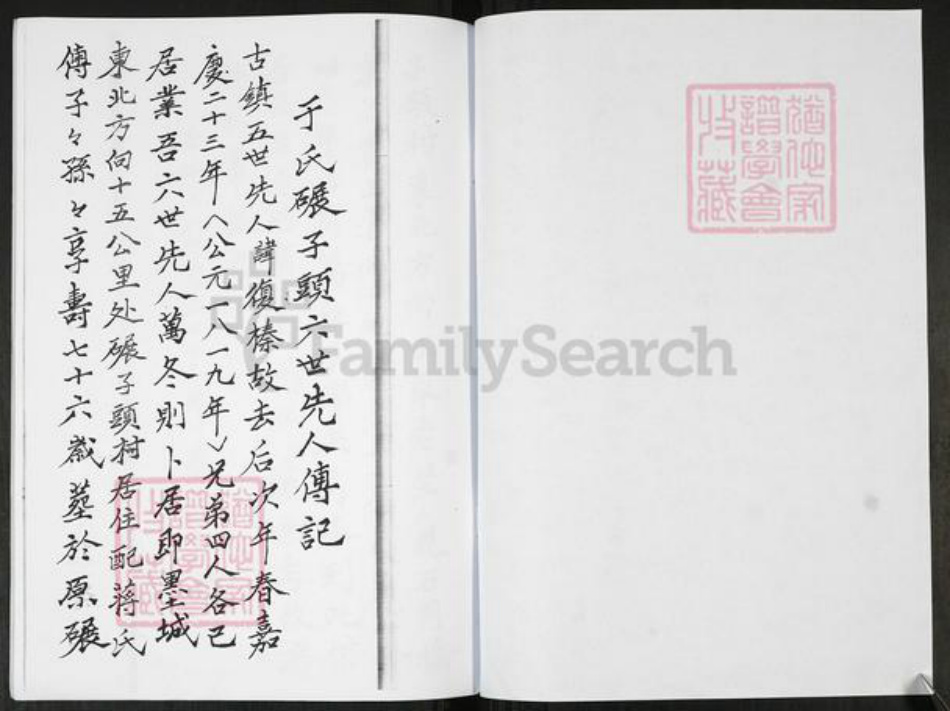 于氏碾子頭六世先人傳記
古鎮五世先人諱復榛故去后次年春嘉
慶二十三年(公元一八一九年)兄弟四人各已
居業吾六世先人萬冬則卜居即墨城
東北方向十五公里处碾子頭村居住配蔣氏
傳子々孫々享壽七十六歲塋於原碾
FamilySearch
譜學會
收藏